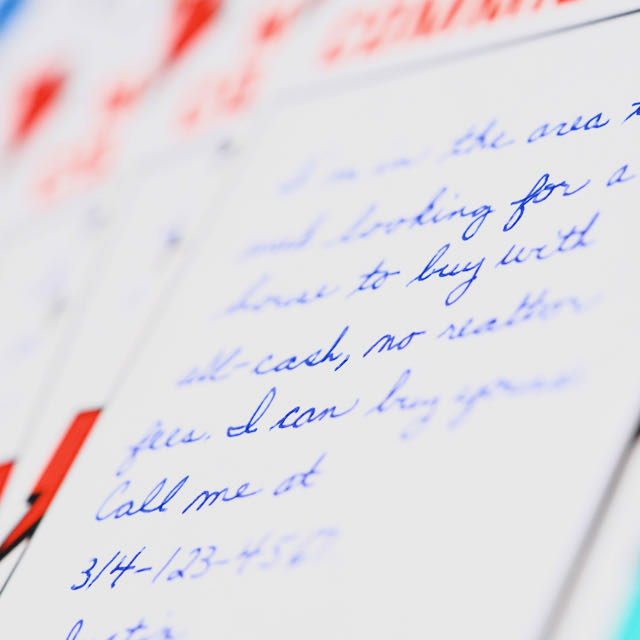 I'm in the area
and looking for a
house to buy with
all-cash, no realtor
fees. I can buy yours
Call me at
314-123-4567